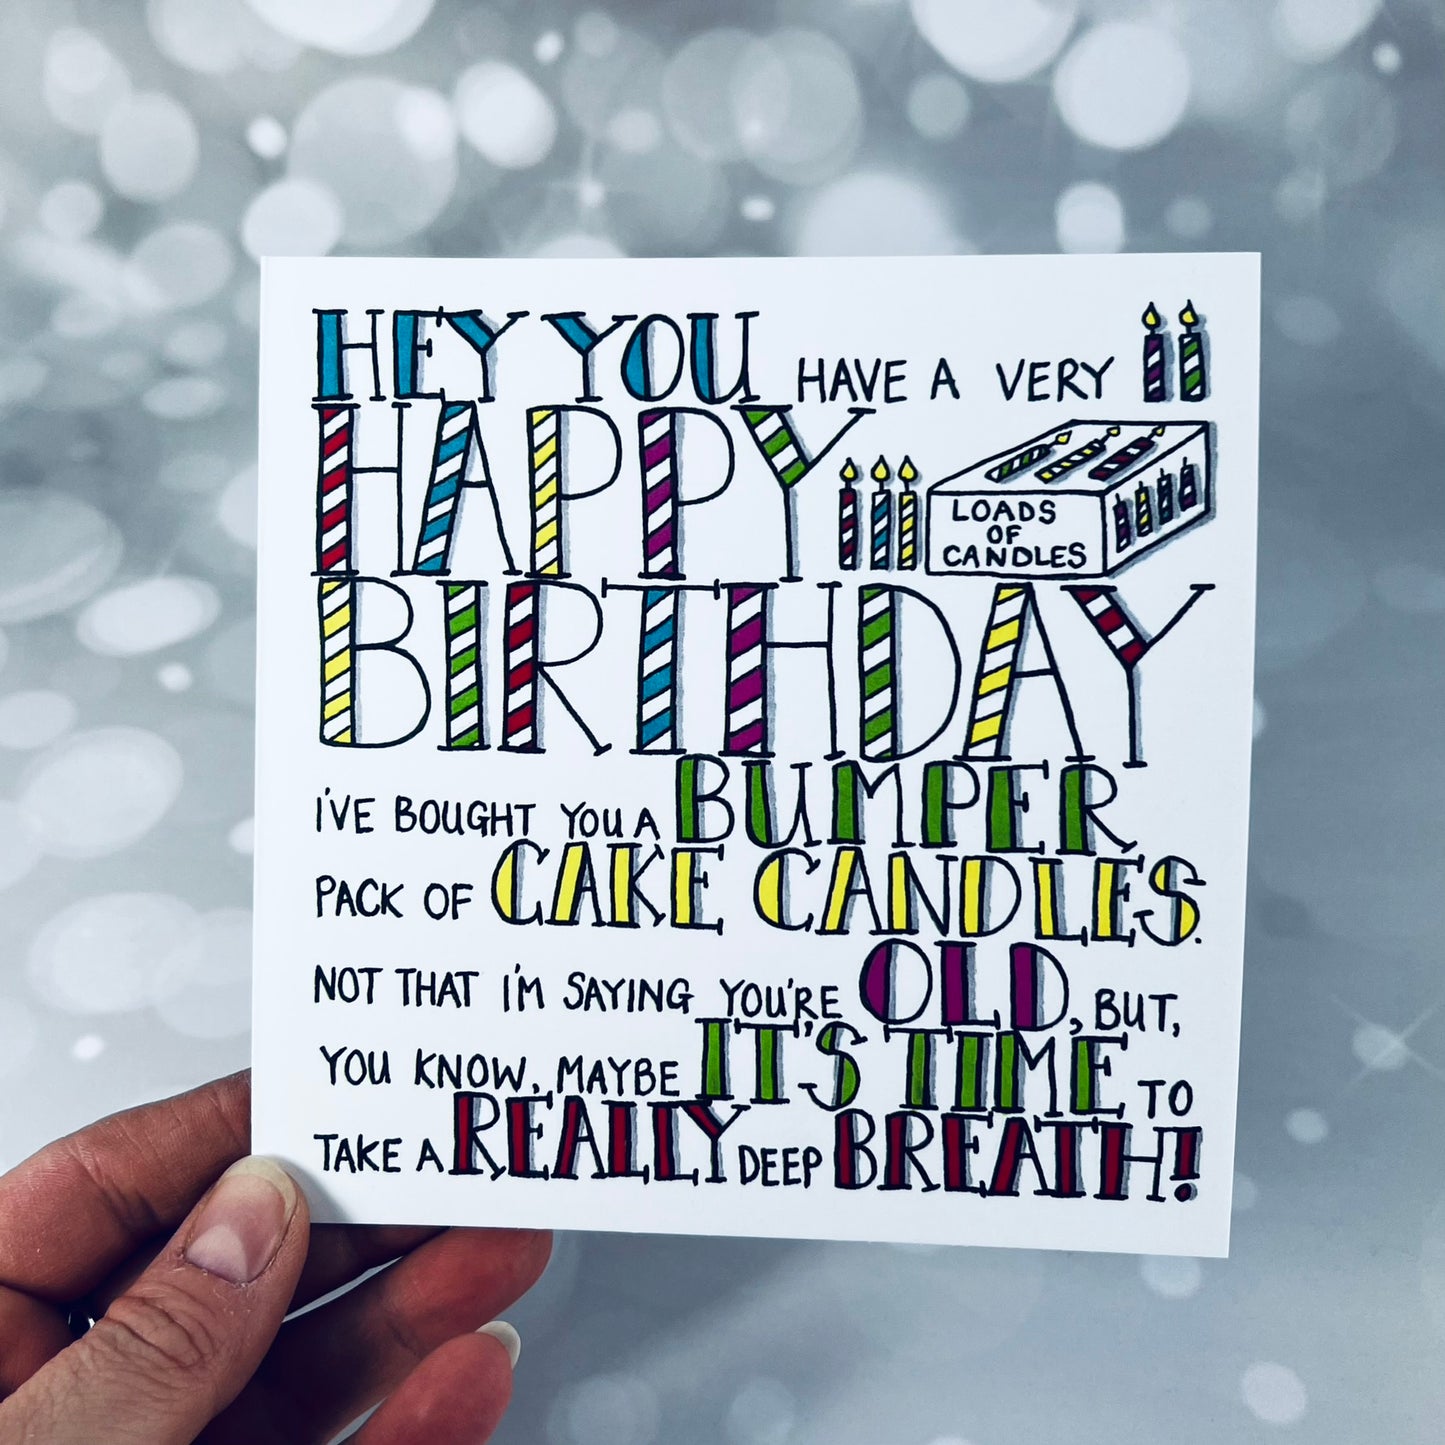 HEY YOU HAVE A VERY
HAPPY
LOADS
OF
CANDLES
BIRTHDAY
I'VE BOUGHT YOU A BUMPER
PACK OF CAKE CANDLES.
NOT THAT I'M SAYING YOU'RE OLD, BUT,
YOU KNOW, MAYBE IT'S TIME TO
TAKE A REALLY DEEP BREATH!